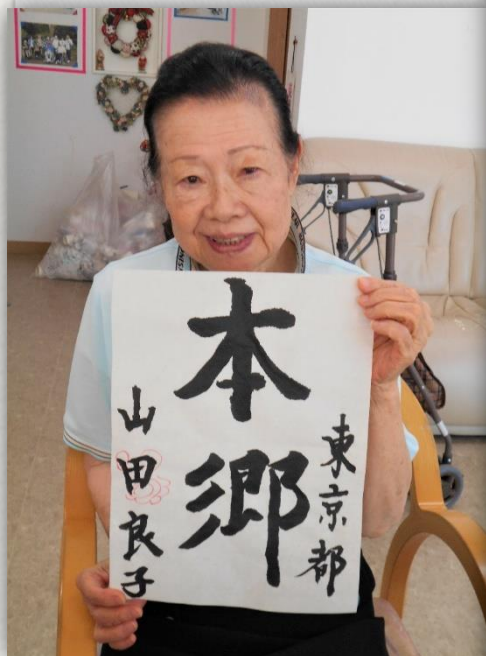 東京都
本郷
山田良子